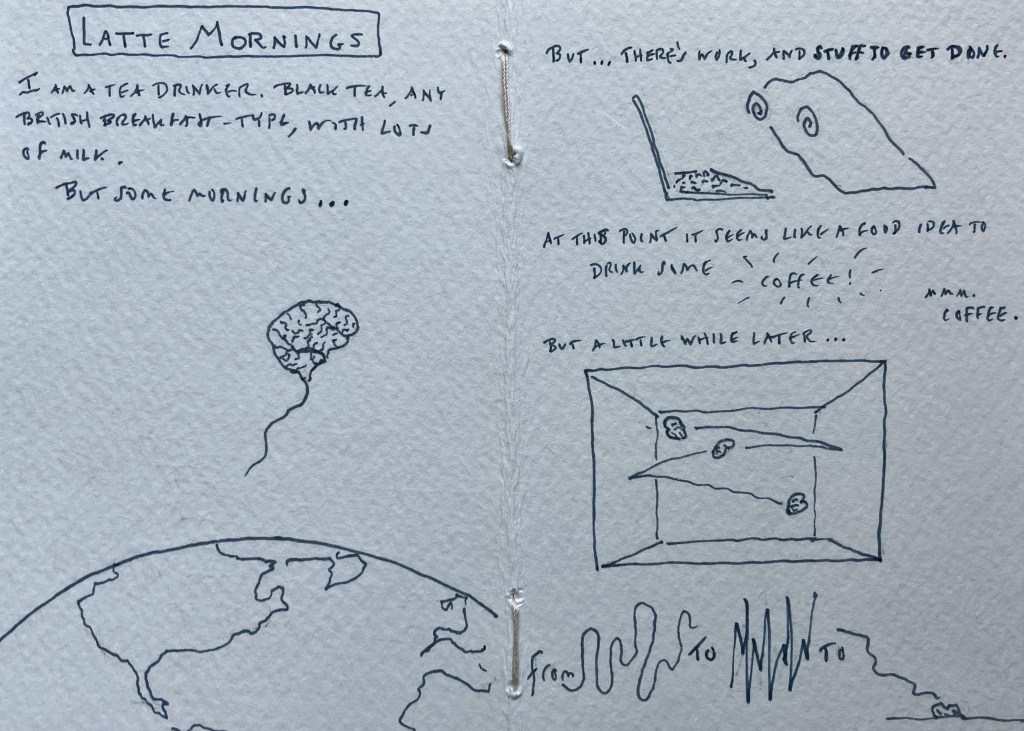 LATTE MORNINGS
I AM A TEA DRINKER. BLACK TEA, ANY
BRITISH BREAKFAST-TYPE, WITH LOTS
OF MILK.
BUT SOME MORNINGS...
BUT... THERE'S WORK, AND STUFF TO GET DONE.
AT THIS POINT IT SEEMS LIKE A GOOD IDEA TO
DRINK SOME COFFEE!
MMM.
COFFEE.
BUT A LITTLE WHILE LATER...
from TO TO